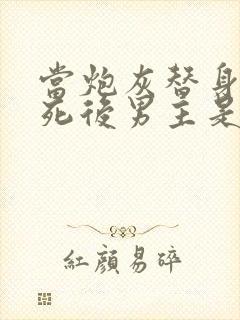 當炮灰替身
死後男主是
紅顏易碎